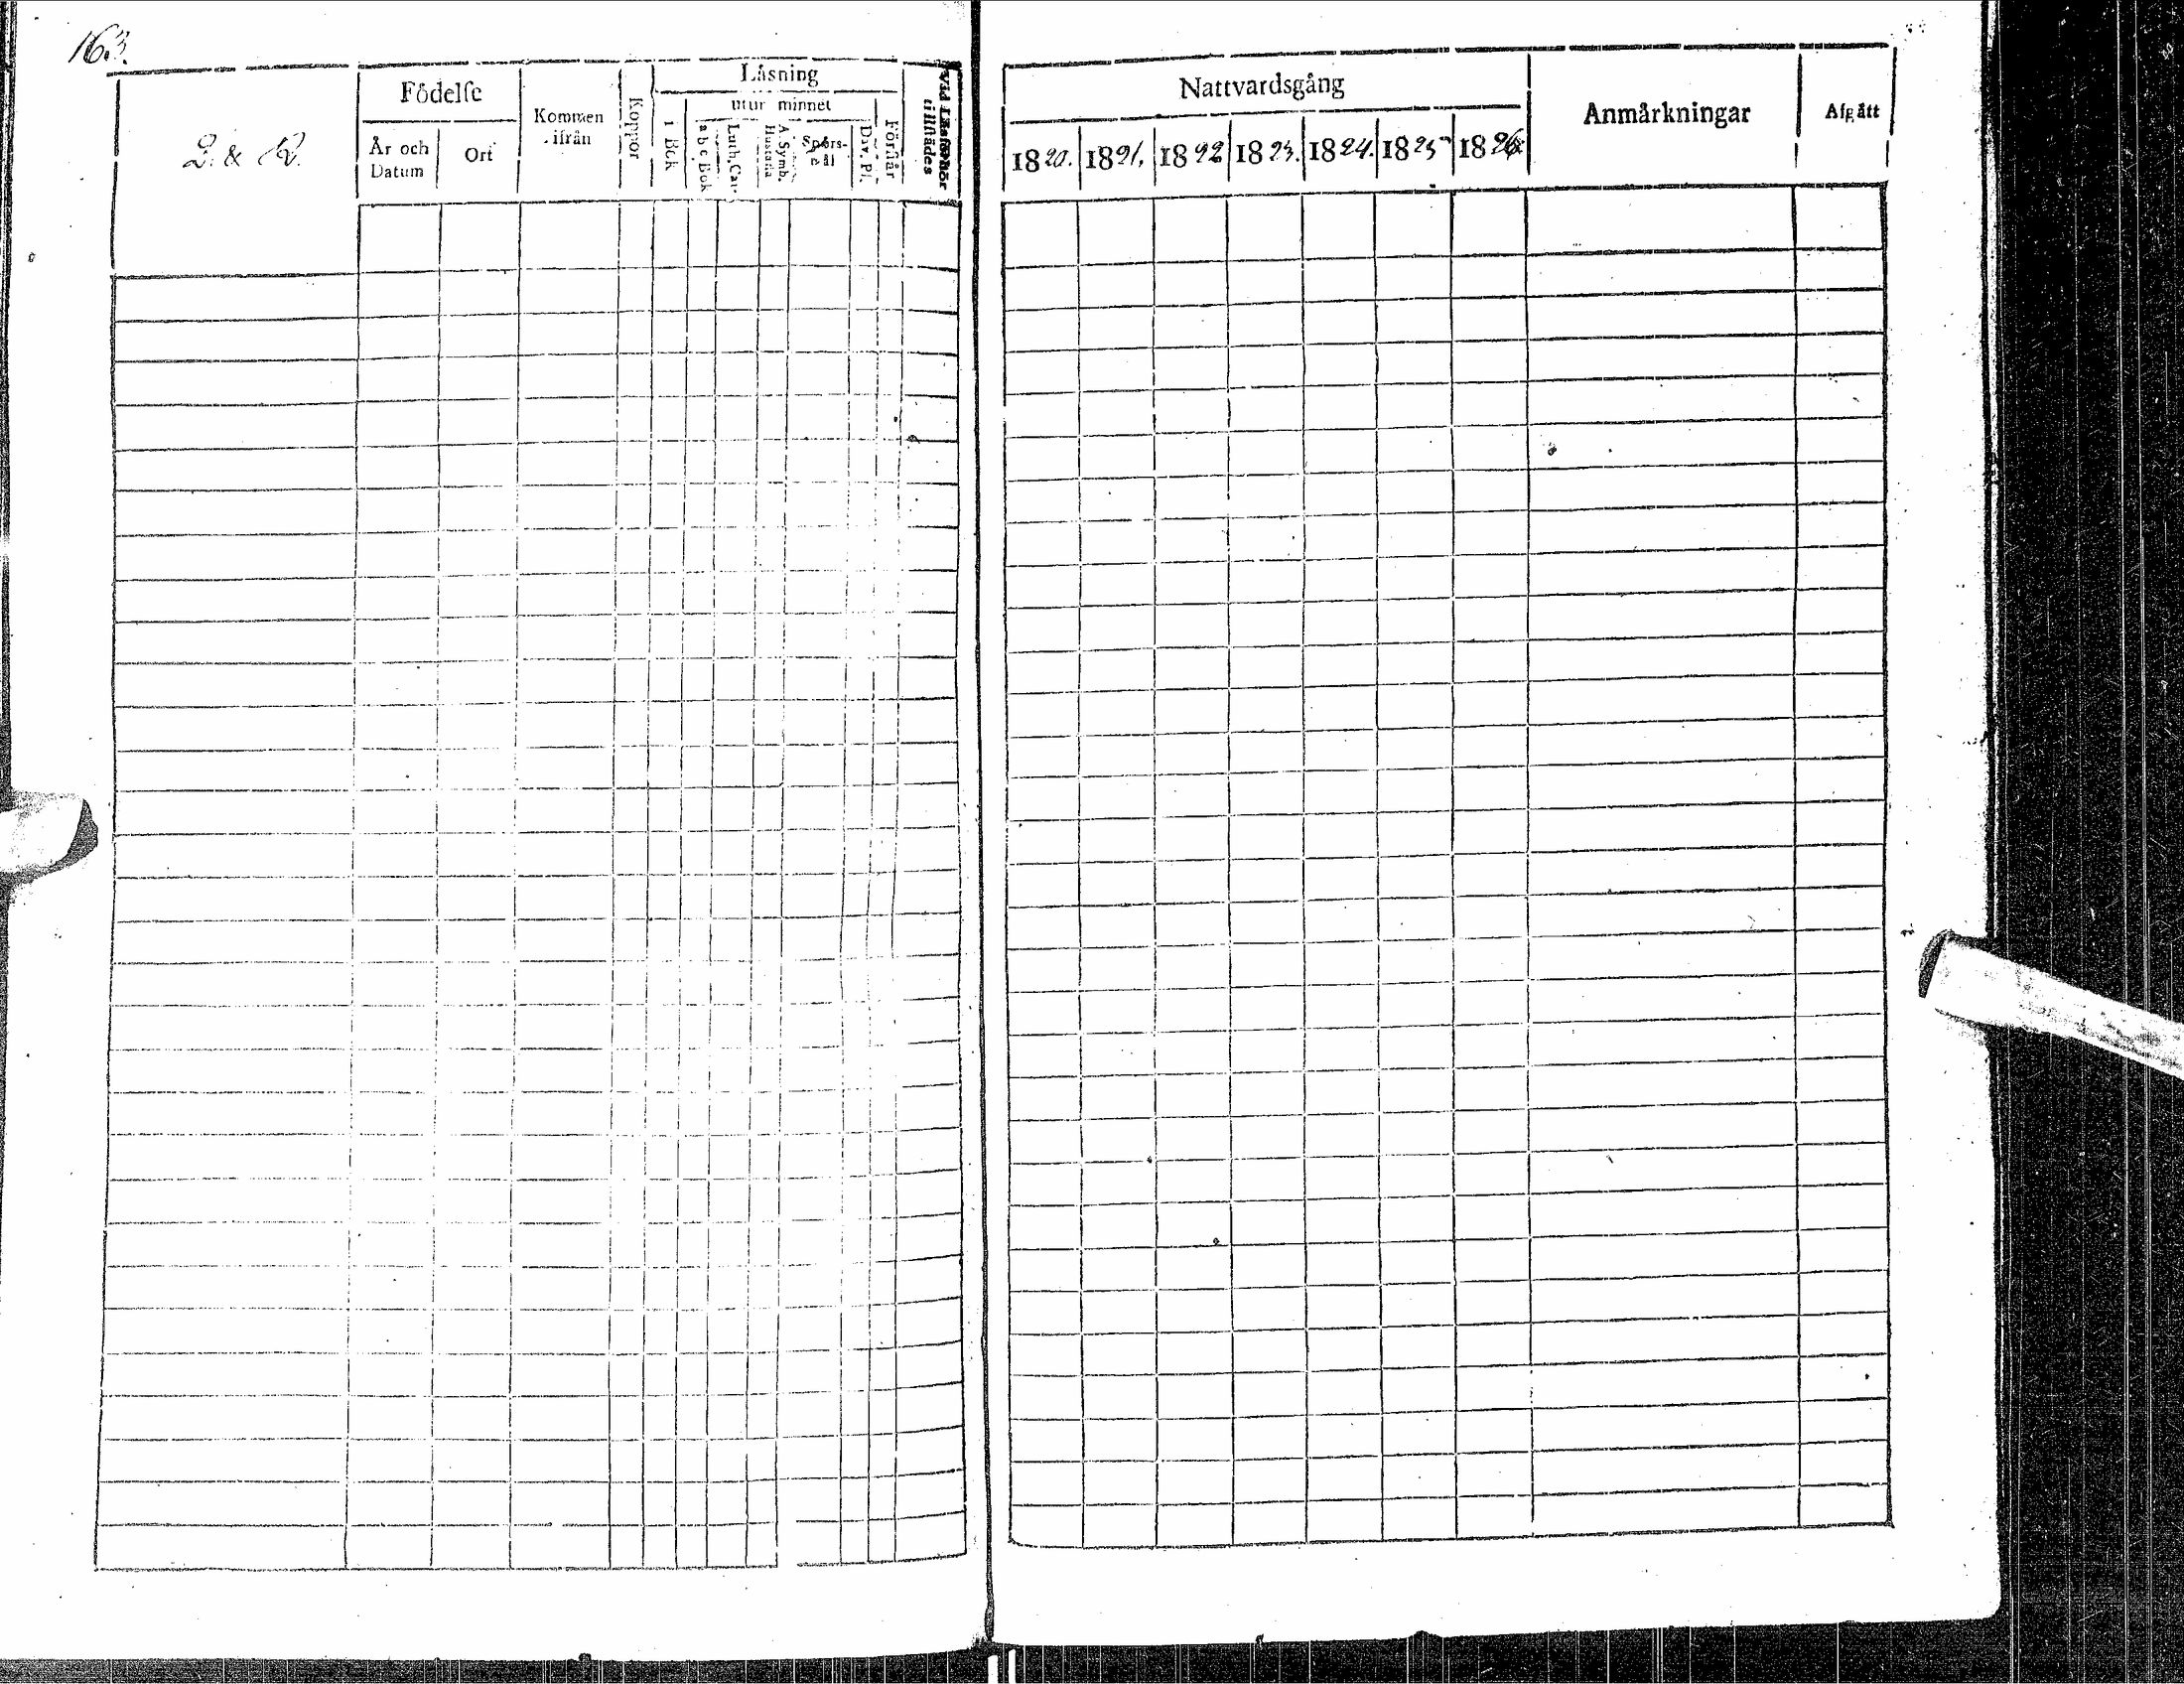 163.
L. & R.
Födelse
År och Datum
Ort
Kommen ifrån
Koppor
Läsning
i Bok
utur minnet
a b c Bok
Luth. Cat.
A. Symb. Hustafla
Spörsmål
Dav. Pf.
Förstår
Vid Läsförhör tillstädes
Nattvardsgång
1820. 1821. 1822 1823. 1824. 1825 1826.
Anmärkningar
Afgått